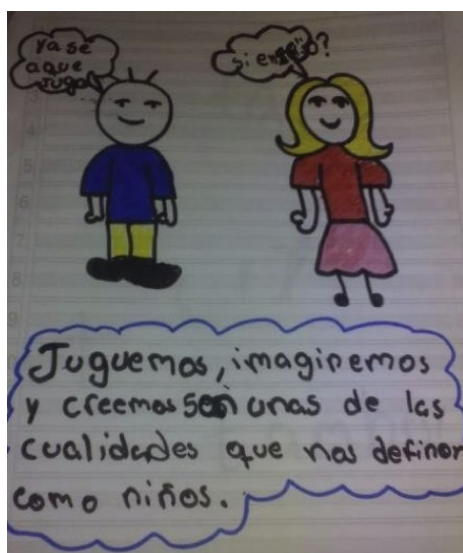 Ya se
a que
Jugar
si en
Juguemos, imaginemos
y creemos son unas de las
cualidades que nos definen
como niños.